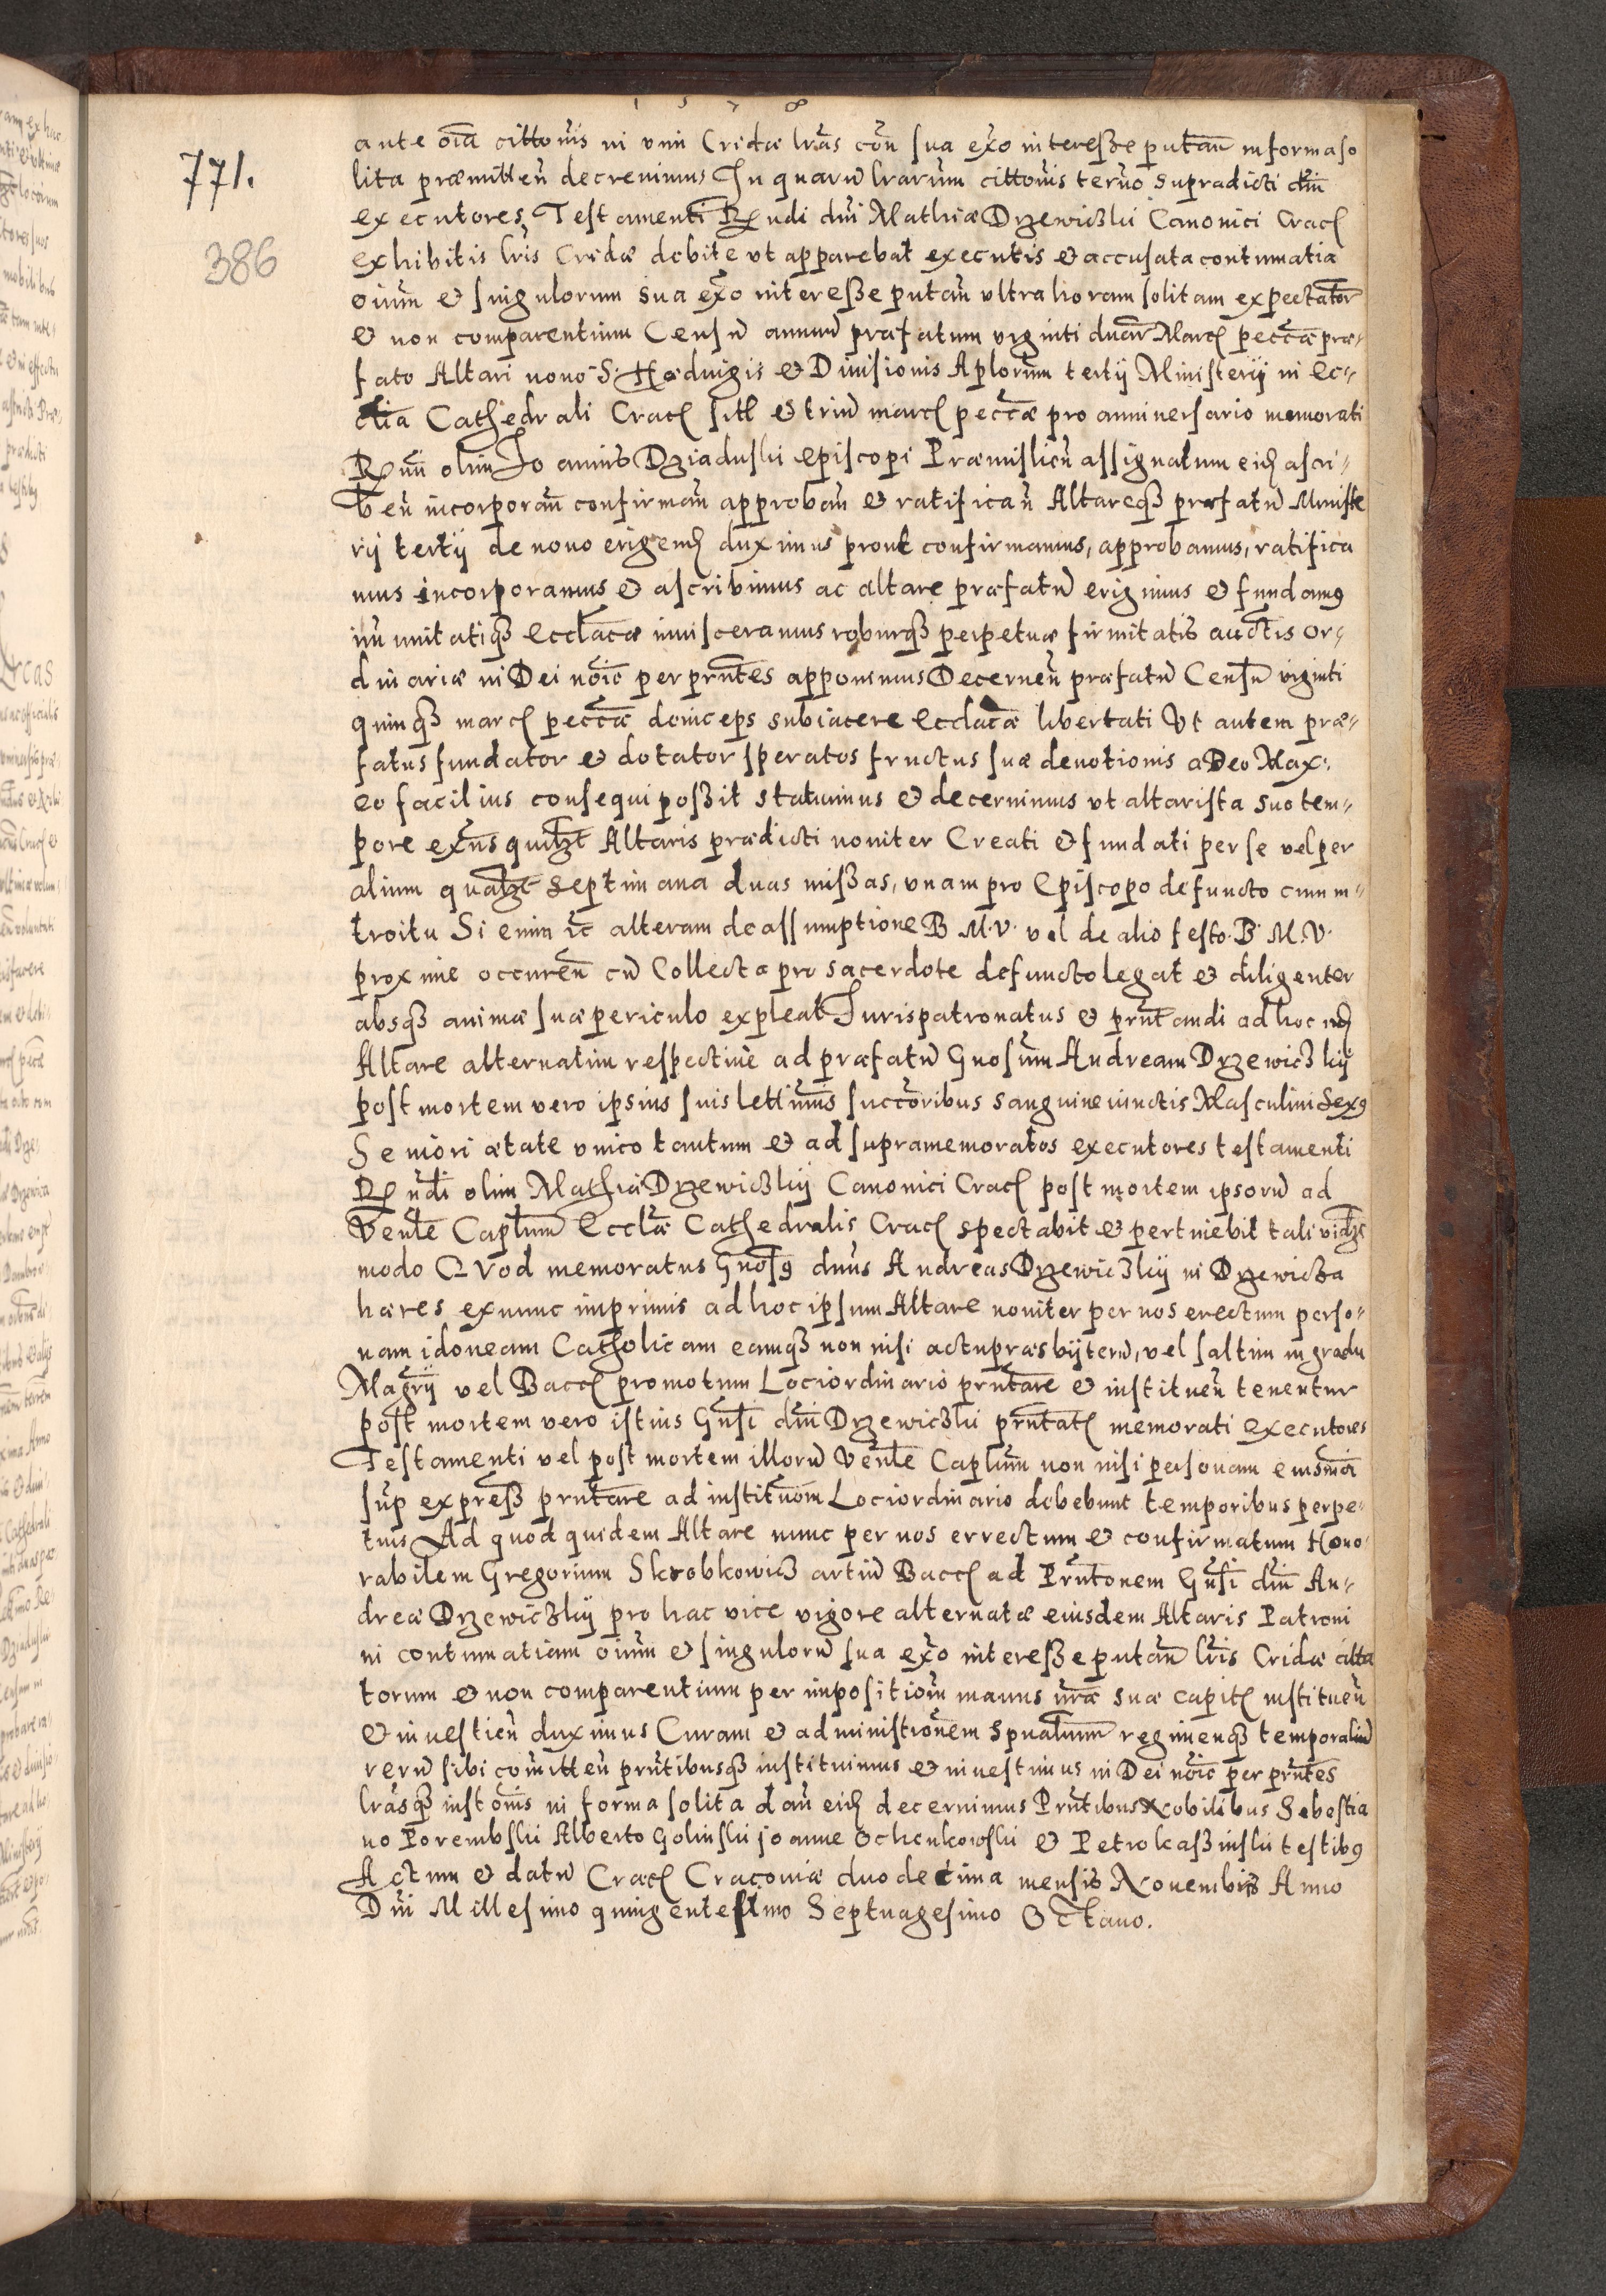 1 5 7 8
771.
386
ante oīa cittonis in vim Cridæ lrās cōn sua exō interesße putan̄ in forma so
lita præmitten̄ decrevimus In quarū lrarum cittonis termo supradicti dn̄i
executores Testamenti Rndi dni Mathiæ Drzewiczki Canonici Crac
exhibitis lris Cridæ debite vt apparebat executis & accusata contumatia
oium & singulorum sua exō interesße putan̄ vltra horam solitam expectator
& non comparentium Censū annuū præfatum viginti duar Marc peccæ præ-
fato Altari novo S. Hedvigis & Divisionis Aplorum tertij Ministerij in Ec-
clia Cathedrali Crac sitt & triū marc peccæ pro anniversario memorati
Rmi olim Joannis Dziaduski Episcopi Præmislien̄ assignatum eid ascri-
ben̄ incorporan̄ confirman̄ approban̄ & ratifican̄ Altareqꝫ præfatū Ministe
rij tertij de novo erigend duximus prout confirmamus, approbamus, ratifica
mus incorporamus & ascribimus ac altare præfatū erigimus & fundamꝰ
im̄unitatiqꝫ Eccl̄acæ invisceramus roburqꝫ perpetuæ firmitatis auctt̄is or-
dinariæ in Dei noīe per prn̄tes apponimus Decernen̄ præfatū Censū viginti
quinqꝫ marc peccæ deinceps subiacere Eccl̄acæ libertati Vt autem præ-
fatus fundator & dotator speratos fructus suæ devotionis a Deo Max:
eo facilius consequi posßit statuimus & decernimus vt altarista suo tem-
pore exn̄s quilzt Altaris prædicti noviter Creati & fundati per se vel per
alium qualzt septimana duas misßas, vnam pro Episcopo defuncto cum in-
troitu Si enim &c alteram de assumptione B M.V. vel de alio festo B. M.V.
proxime occuren̄ cū Collecta pro sacerdote defuncto legat & diligenter
absqꝫ animæ suæ periculo expleat Jurispatronatus & prn̄tandi ad hoc id
Altare alternatim respective ad præfatū Gnosum Andream Drzewiczkij
post mortem vero ipsius suis lettimis succoribus sanguine iunctis Masculini Sexꝰ
Seniori ætate vnico tantum & ad supramemoratos executores testamenti
Rndi olim Mathiæ Drzewiczkij Canonici Crac post mortem ipsorū ad
Venle Caplum Ecclæ Cathedralis Crac spectabit & pertinebit tali vidzt
modo Qvod memoratus Gnosꝰ dnus Andreas Drzewiczkij in Drzewicza
hæres ex nunc imprimis ad hoc ipsum Altare noviter per nos erectum perso-
nam idoneam Catholicam eamqꝫ non nisi actu præsbyterū, vel saltim in gradu
Magrij vel Bacc promotum Loci ordinario prn̄tare & instituen̄ tenentur
post mortem vero istius Gnsi dni Drzewiczki prn̄tat memorati executores
Testamenti vel post mortem illorū Venle Caplum non nisi personam eiusmoi
sup expresß prn̄tare ad institutionem Loci ordinario debebunt temporibus perpe-
tuis Ad quod quidem Altare nunc per nos errectum & confirmatum Hono-
rabilem Gregorium Skrobkowicz artiū Bacc ad Prn̄tonem Gnsi dni An-
dreæ Drzewiczkij pro hac vice vigore alternatæ eiusdem Altaris Patroni
in contumatiam oium & singulorū sua exō interesße putan̄ lris Cridæ citta
torum & non comparentium per impositiom manus nræ suæ capiti instituen̄
& investien̄ duximus Curam & administionem spualium regimenqꝫ temporaliū
rerū sibi comitten̄ prn̄tibusqꝫ instituimus & investimus in Dei noīe per prn̄tes
lrasqꝫ instonis in forma solita dan̄ eid decernimus Prn̄tibus Nobilibus Sebestia
no Porembski Alberto Golinski Joanne Ochenkowski & Petro Kasßinski testibꝰ
Actum & datū Crac Cracoviæ duodecima mensis Novembris Anno
Dni Millesimo quingentesimo Septuagesimo Octavo.